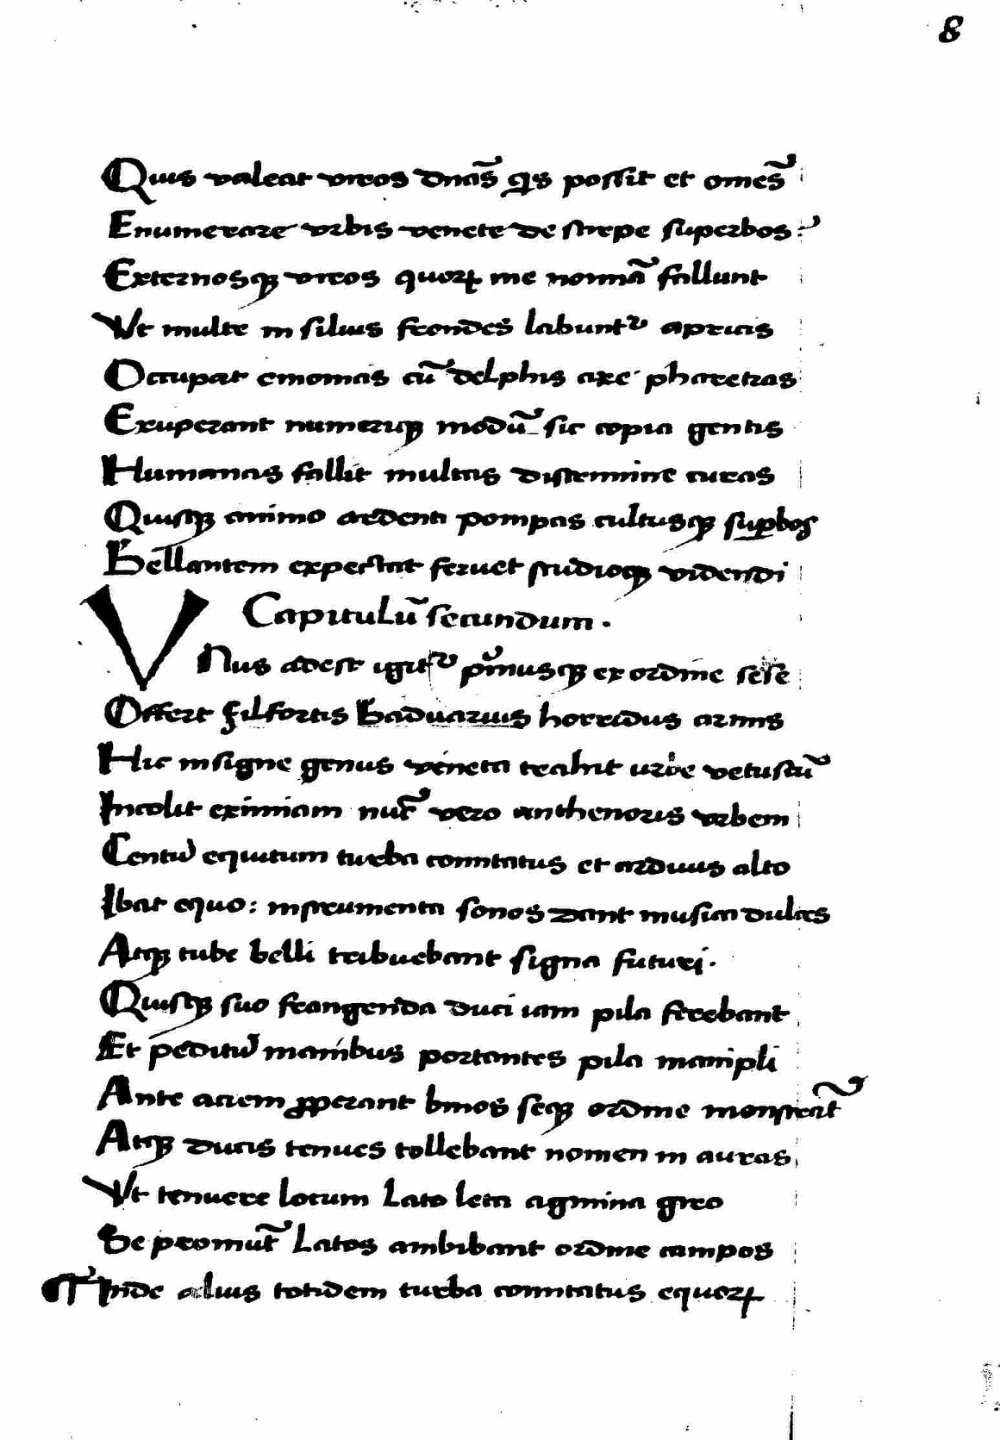 8
Quis valeat viros dnãs qs possit et omes̃
Enumerare vrbis venete de stirpe superbos:
Externosqꝫ viros quorꝝ me nomina fallunt
Vt multe in siluis frondes labuntr apricis
Occupat emomas cũ delphis axe pharetras
Exuperant numerũqꝫ modũ sic copia gentis
Humanas fallit multas discrimine curas
Quisqꝫ animo ardenti pompas cultusqꝫ suꝑbos
Bellantem expectat feruet studioqꝫ videndi
Capitulũ secundum.
Vnus adest igitr pᵢmusqꝫ ex ordine sese
Offert fil fortis Baduarius horridus armis
Hic insigne genus veneta trahit urbe vetustũ
Incolit eximiam nũc vero anthenoris vrbem
Centũ equitum turba comitatus et arduus alto
Ibat equo: instrumenta sonos dant musica dulces
Atqꝫ tube belli tribuebant signa futuri.
Quisqꝫ suo frangenda duci iam pila ferebant
Et peditũ manibus portantes pila manipli
Ante aciem ꝓperant binos seqꝫ ordine monstrãt
Atqꝫ ducis tenues tollebant nomen in auras
Vt tenuere locum Lato leta agmina giro
Se promũt Latos ambibant ordine campos
¶ Inde alius totidem turba comitatus equorꝝ